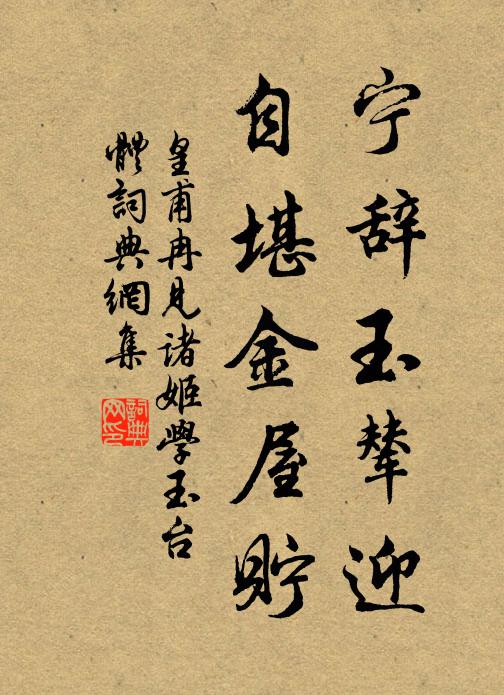 宁辞玉辇迎
自堪金屋贮
皇甫冉见诸姬學玉台
體詞典網集
詞典
网印